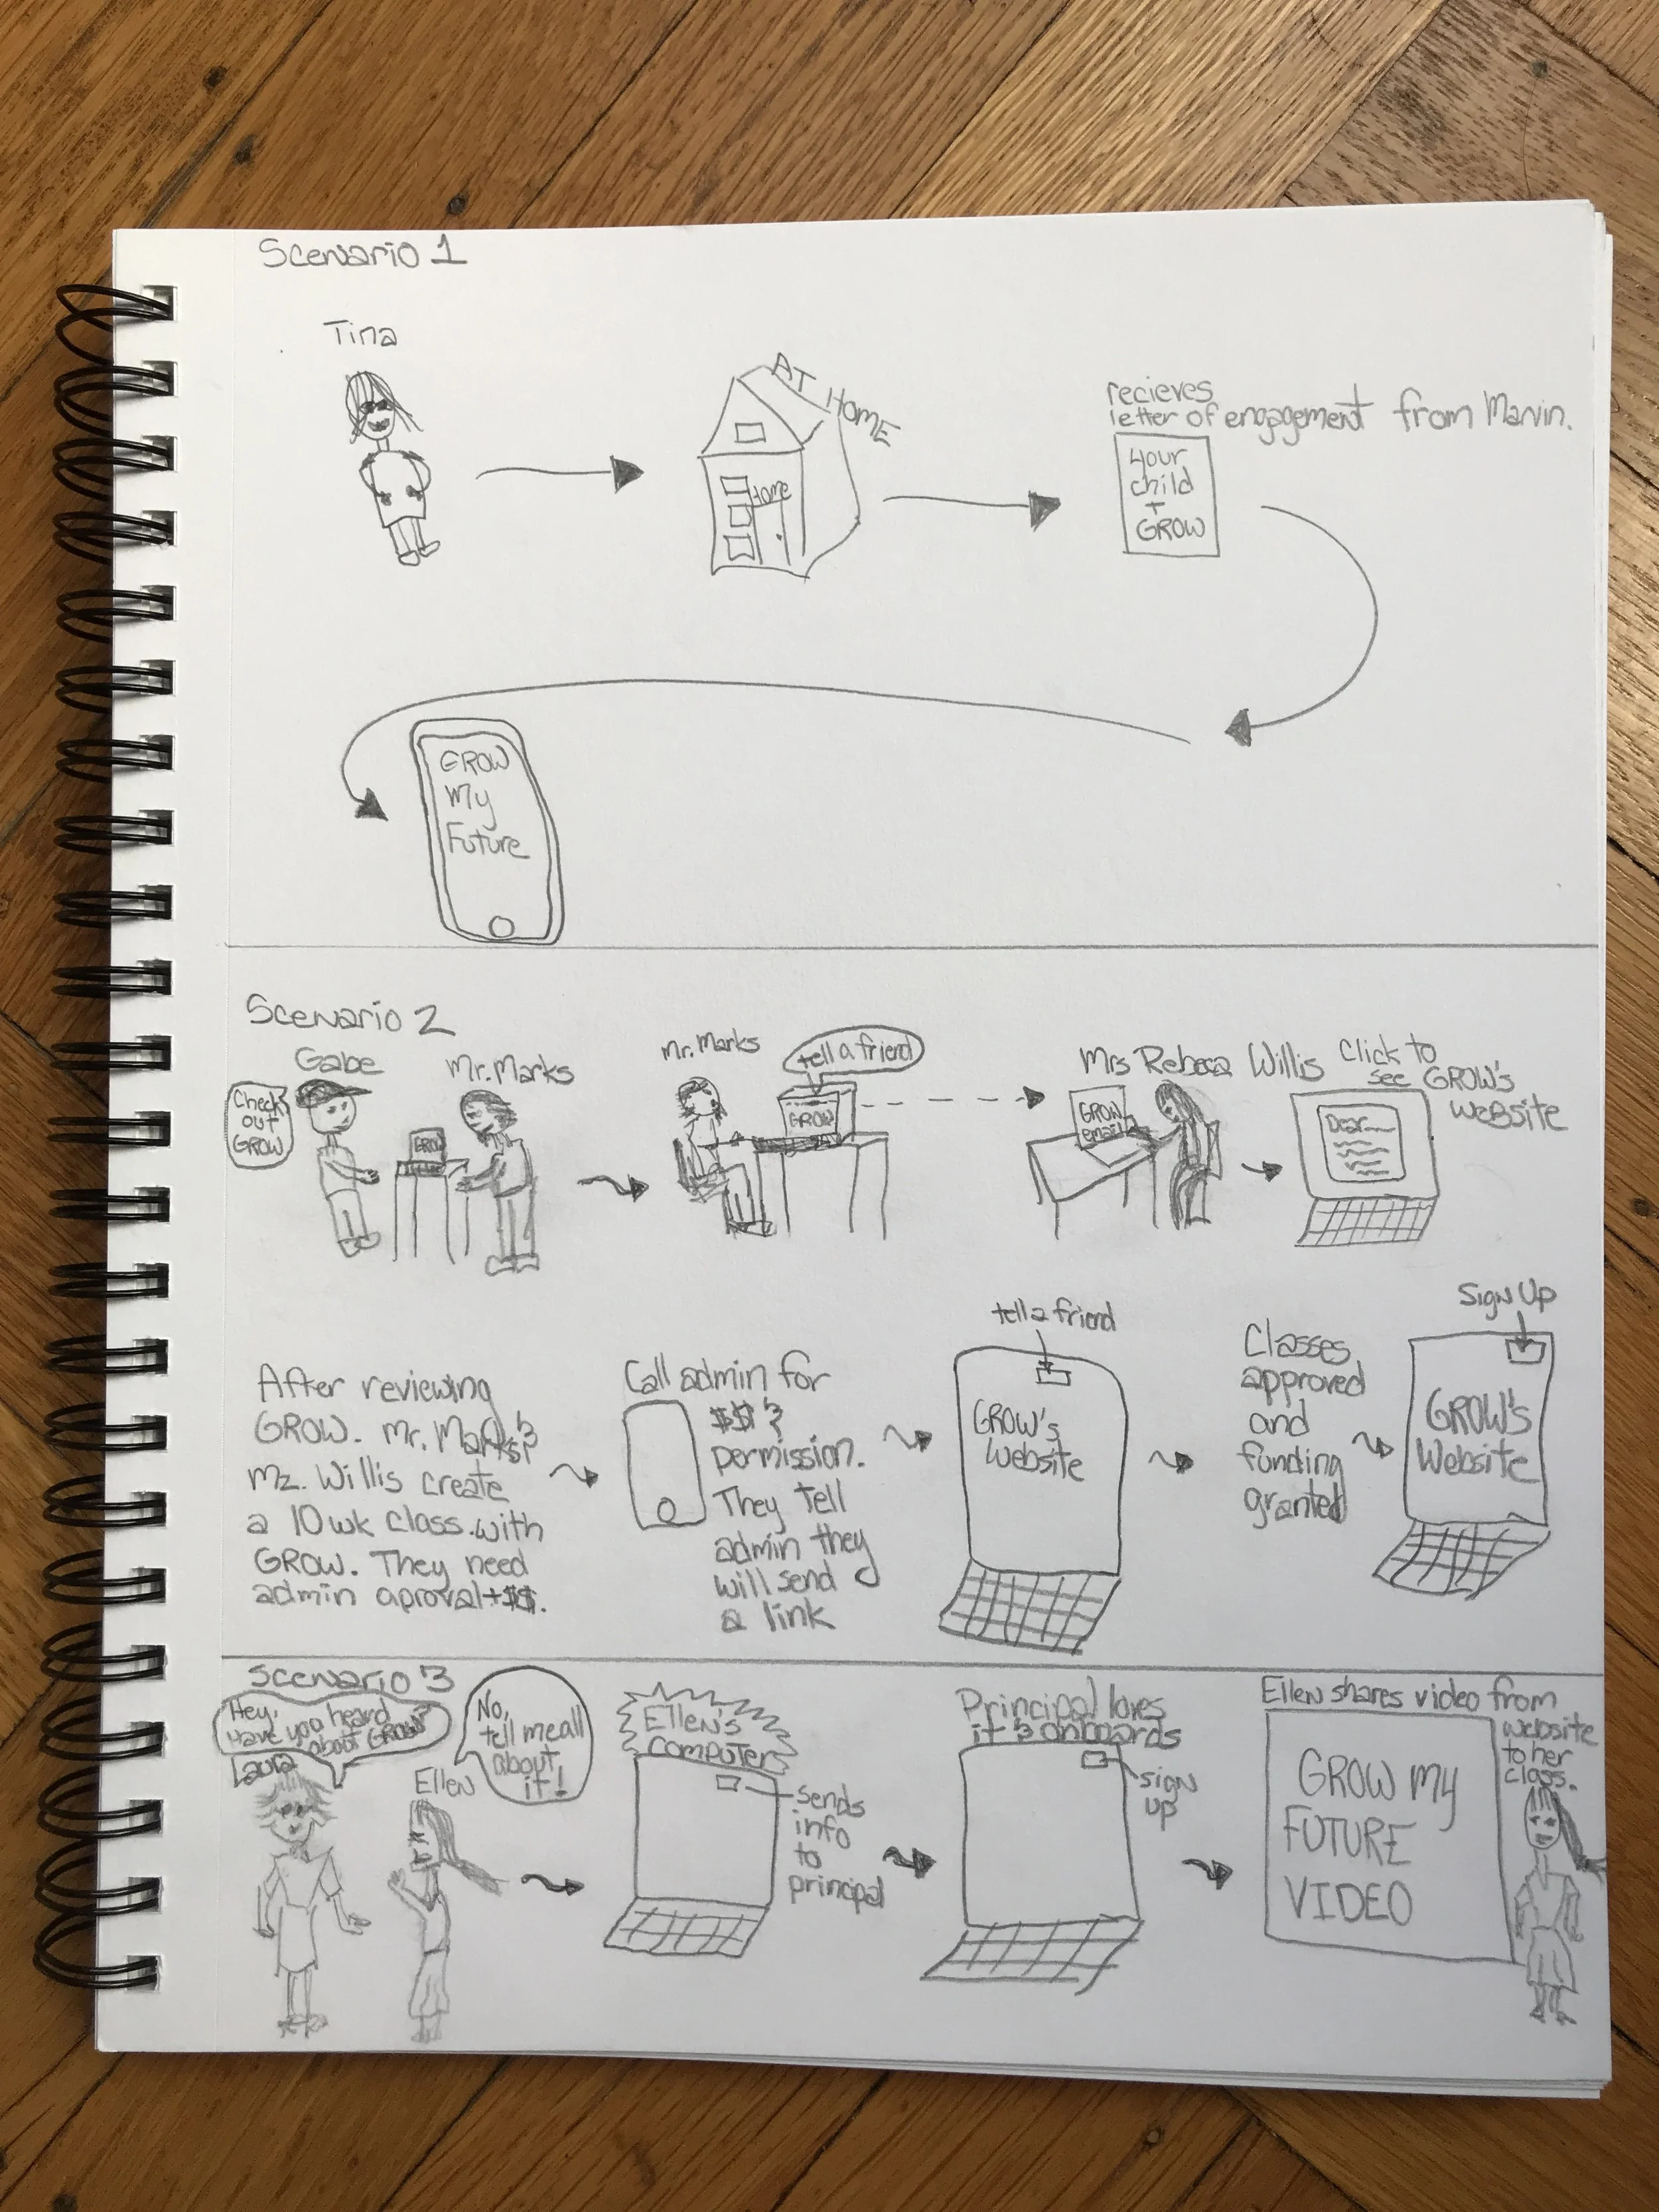 Scenario 1
Tina
AT HOME
Home
recieves
letter of engagement from Marvin.
your
child
+
GROW
GROW
My
Future
Scenario 2
Gabe
Mr. Marks
Check
out
GROW
GROW
Mr. Marks
tell a friend
GROW
Mrs Rebeca Willis
GROW
email
Click to
see GROW's
website
Dear
After reviewing
GROW. Mr. Marks &
Mz. Willis create
a 10 wk class with
GROW. They need
admin aproval + $$.
Call admin for
$$ &
permission.
They tell
admin they
will send
a link
tell a friend
GROW's
Website
Classes
approved
and
funding
granted
Sign Up
GROW'S
Website
Scenario 3
Hey,
Have you heard
about GROW?
Laura
Ellen
No,
tell me all
about
it!
ELLEN'S
COMPUTER
sends
info
to
principal
Principal loves
it & onboards
sign
up
Ellen shares video from
website
to her
class.
GROW MY
FUTURE
VIDEO